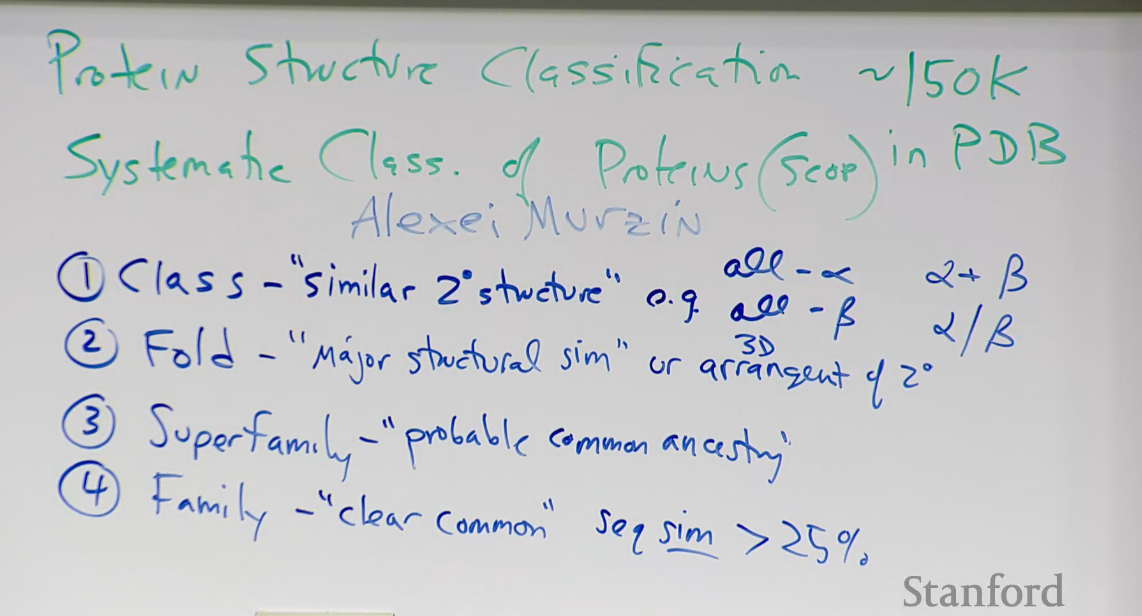 Protein Structure Classification ~150K
Systematic Class. of Proteins (Scop) in PDB
Alexei Murzin
① Class - "similar 2° structure" e.g. all - α α + β
all - β α/β
② Fold - "Major structural sim" or 3D arrangent of 2°
③ Superfamily - "probable common ancestry"
④ Family - "clear common" seq sim > 25%
Stanford